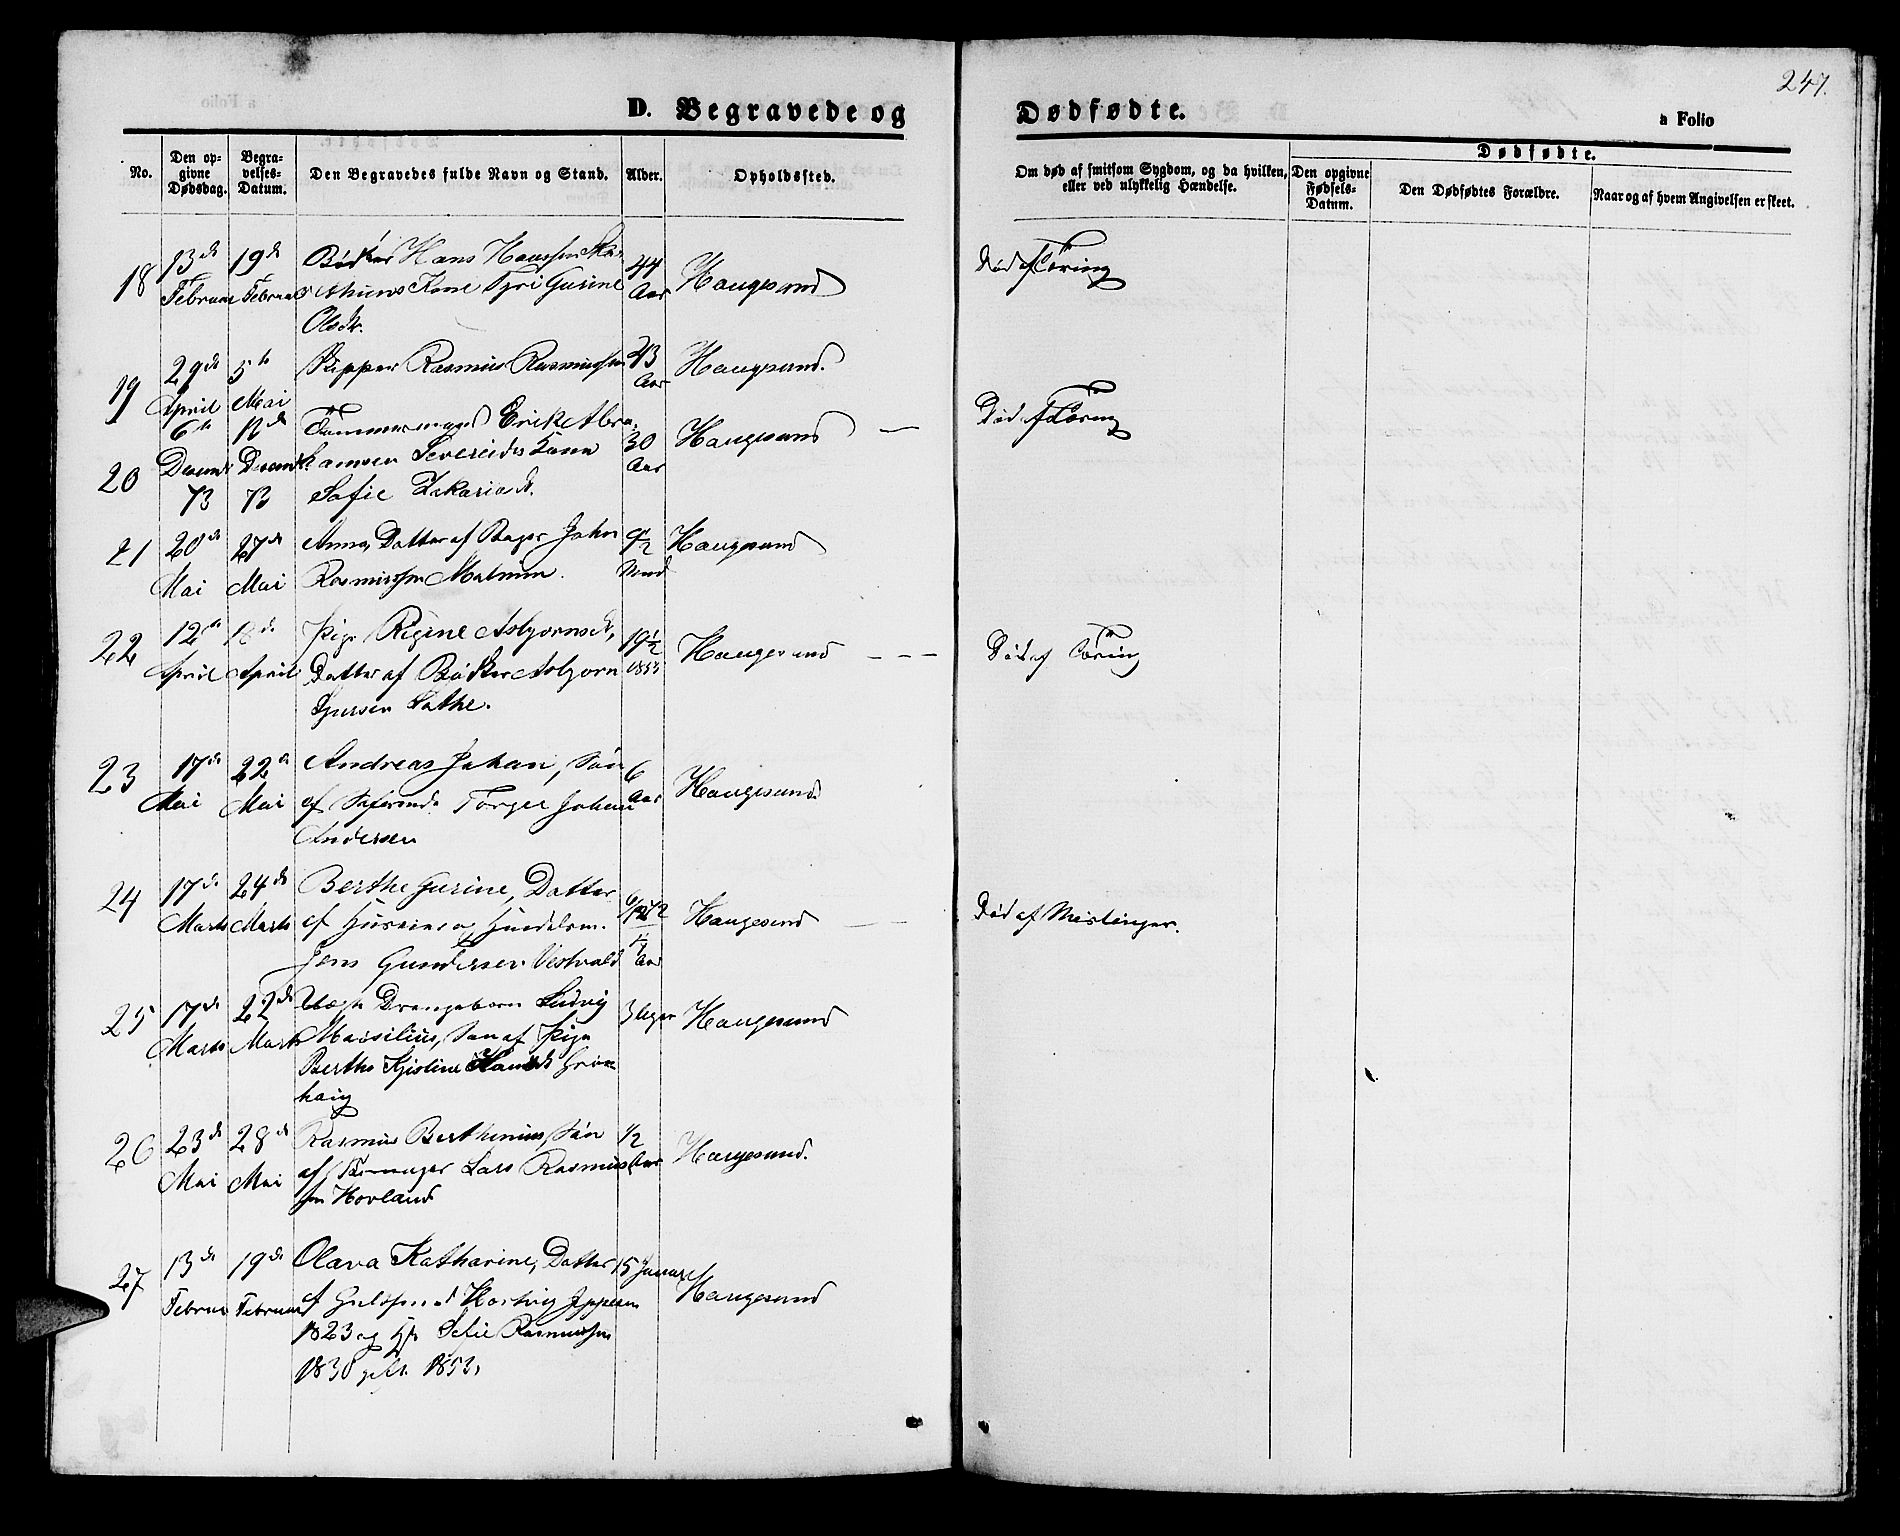 247.
D. Begravede og Dødfødte.
a Folio
No.
Den op-
givne
Dødsdag.
Begra-
velses-
Datum.
Den Begravedes fulde Navn og Stand.
Alder.
Opholdssted.
Om død af smitsom Sygdom, og da hvilken,
eller ved ulykkelig Hændelse.
Dødfødte.
Den opgivne
Fødsels-
Datum.
Den Dødfødtes Forældre.
Naar og af hvem Angivelsen er skeet.
18 13de Februar 19de Februar
Bødker Hans Hanssen
Kone Gurine
Olsdtr.
44 Aar
Haugesund
Død af Tæring
19 29de April 5te Mai
Skipper Rasmus Rasmussen
43 Aar
Haugesund.
20 6te Decemb 73 12de Decemb 73
Tømmermand Erik Abra-
hamsen Severeides Kone
Sofie Zakariasd.
30 Aar
Haugesund —
Død af Tæring
21 20de Mai 27de Mai
Anna, Datter af Bager John
Rasmussen Malmin.
9/2 Mnd
Haugesund
22 12te April 18de April
Pige Regine Asbjørnsd,
Datter af Bødker Asbjørn
Sjursen Sathe.
19 1/2
1855
Haugesund - - -
Død af Tæring
23 17de Mai 22de Mai
Andreas Johan, Søn
af Søfarende Torger Johan
Andersen
6 Aar
Haugesund
24 17de Marts 24de Marts
Berthe Gurine, Datter
af Huseier og Handelsm.
Jens Gundersen Vestvold
Aar
Haugesund —
Død af Meslinger.
25 17de Marts 22de Marts
Uægte Drengebarn Ludvig
Massilius, Søn af Pige
Berthe Kjistine
haug
3 Uger
Haugesund
26 23de Mai 28de Mai
Rasmus Berthinius, Søn
af Lars Rasmus-
sen Hovland
1/2 Aar
Haugesund.
27 13de Februar 19de Februar
Olava Katharine, Datter
af Guldsmed Jeppesen
1823 og H. Sofie Rasmussen
1830 gift 1853.
15 Januar
Haugesund